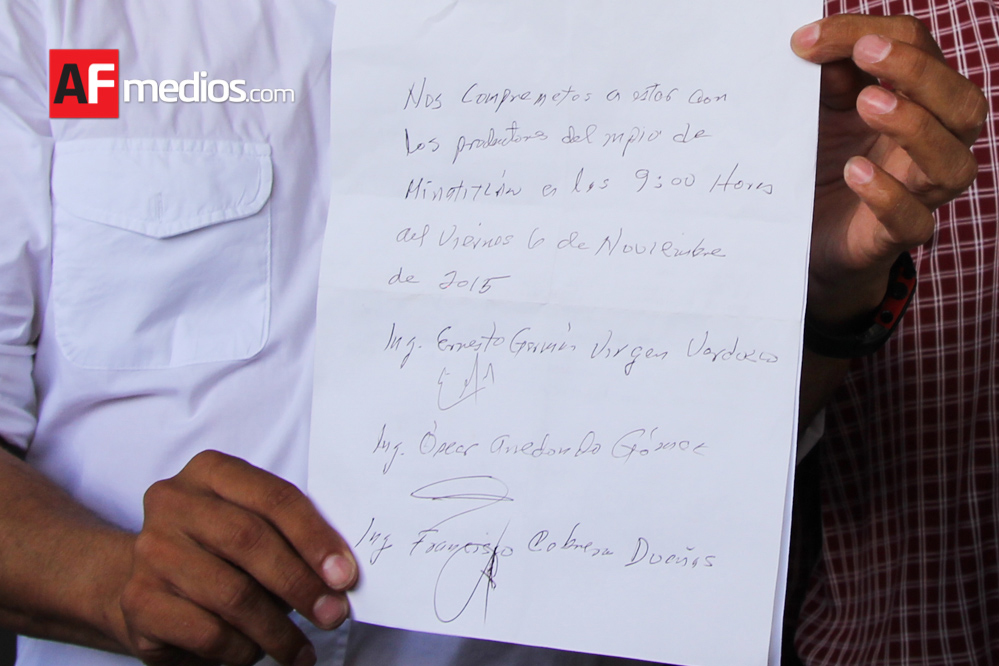 AFmedios.com
Nos Comprometos a estar con
los productores del mpio de
Minatitlán a las 9:00 Horas
del Viernes 6 de Noviembre
de 2015
Ing. Ernesto Germán Virgen Verduzco
Ing. Óscar Arredondo Gómez
Ing Francisco Cabrera Dueñas